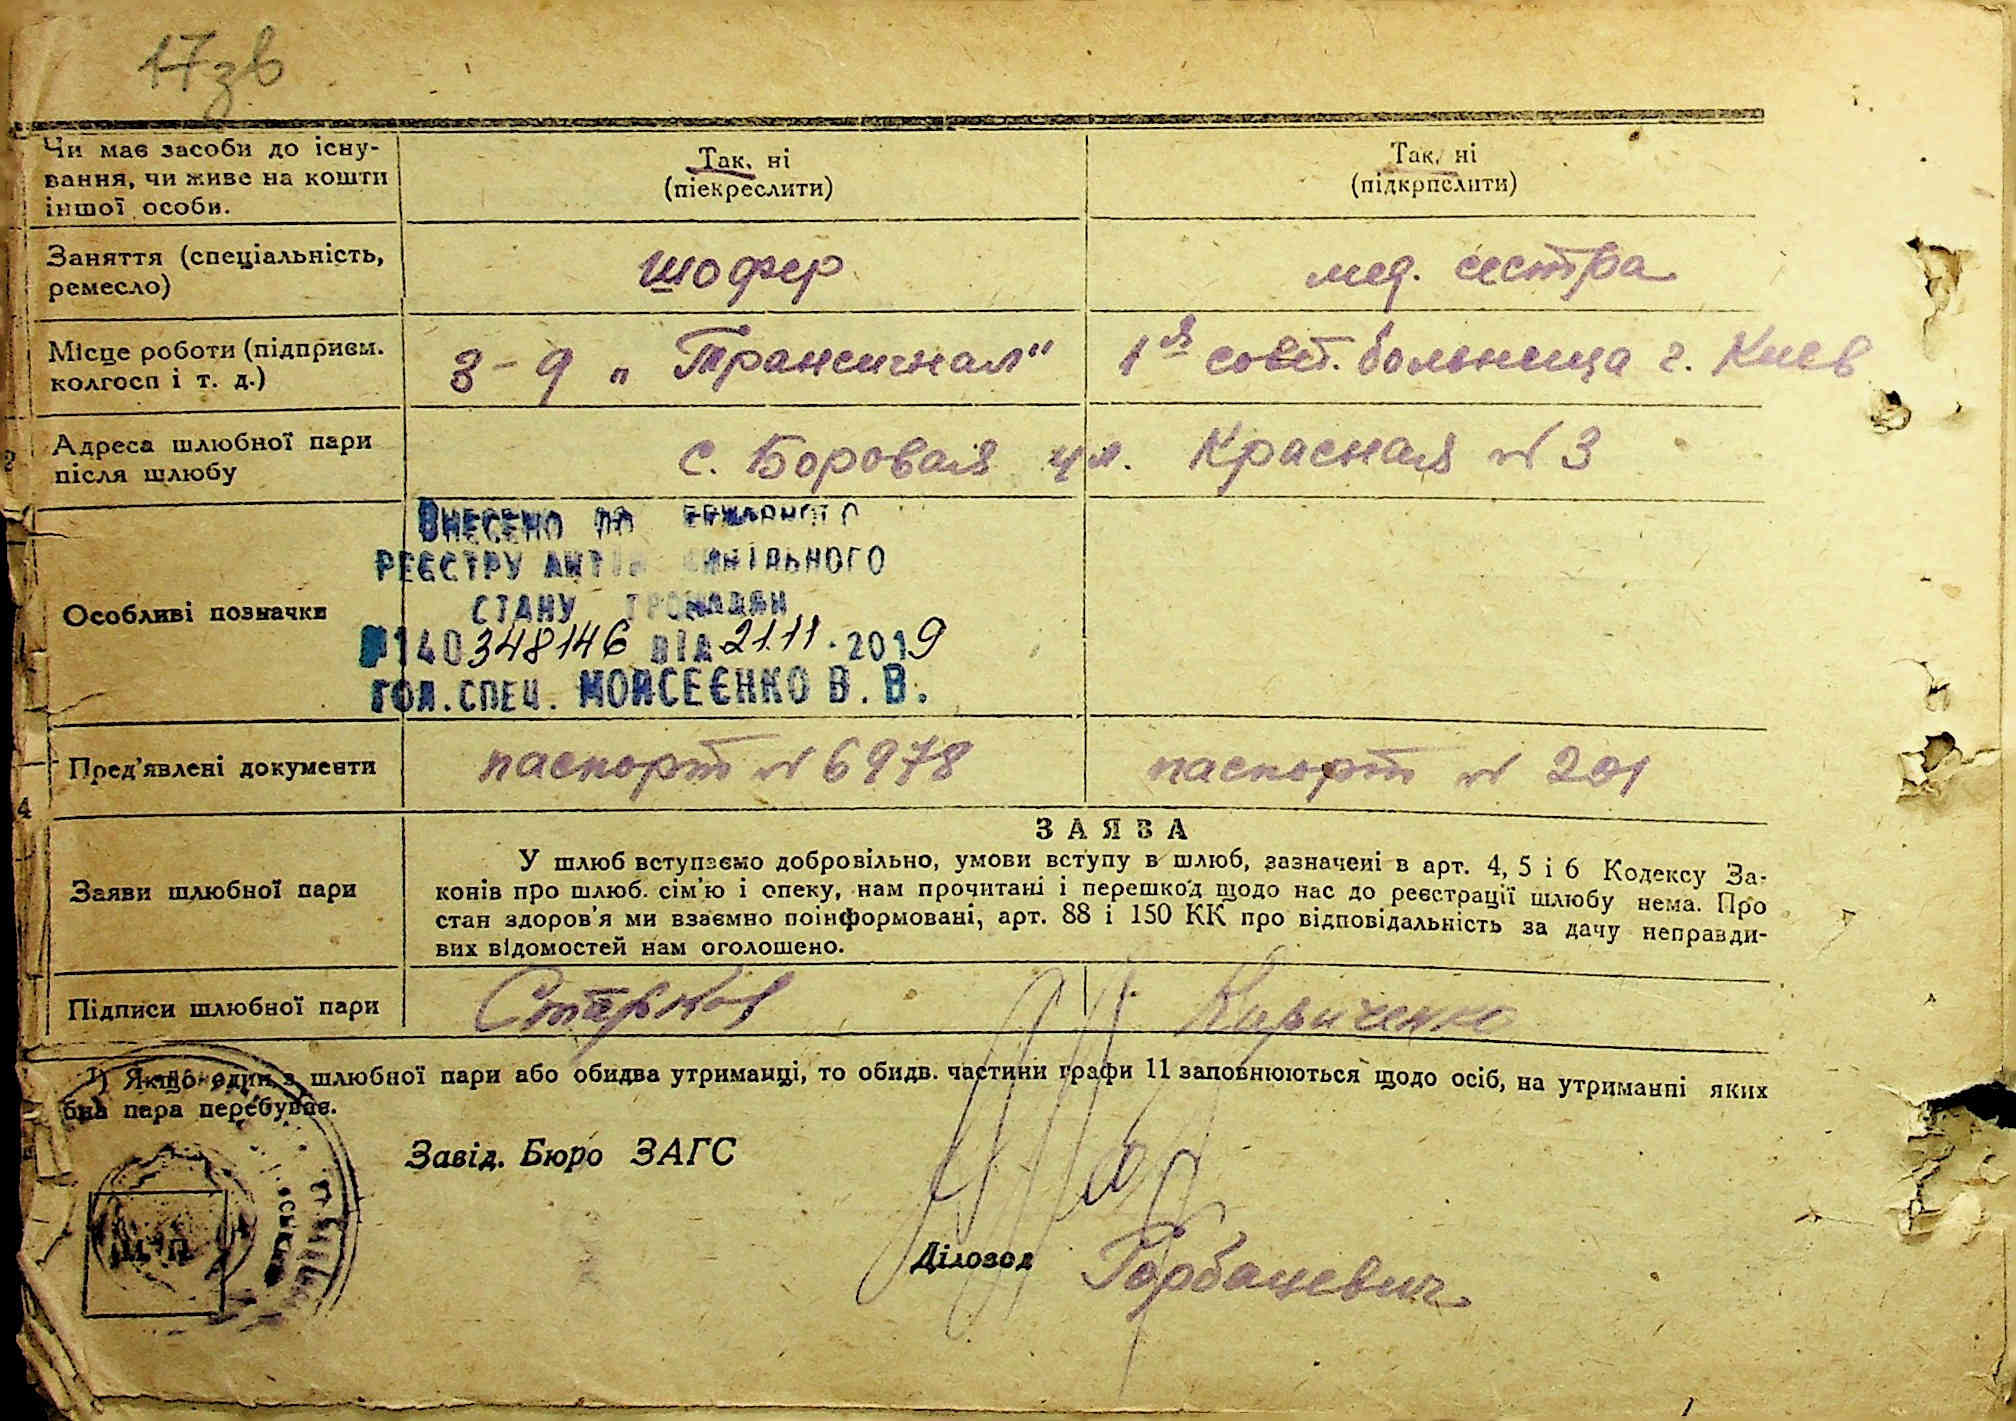 17зв
Чи має засоби до існу-
вання, чи живе на кошти
іншої особи.
Так, ні
(піекреслити)
Так, ні
(підкрпслити)
Заняття (спеціальність,
ремесло)
шофер
мед. сестра
Місце роботи (підприєм.
колгосп і т. д.)
з-д „Трансигнал"
1я совет. больница г. Киев
Адреса шлюбної пари
після шлюбу
с. Боровая ул. Красная №3
Особливі позначки
ВНЕСЕНО ДО ДЕРЖАВНОГО
РЕЄСТРУ АКТІВ ЦИВІЛЬНОГО
СТАНУ ГРОМАДЯН
№140348146 ВІД 21.11.2019
ГОЛ.СПЕЦ. МОЙСЕЄНКО В.В.
Пред'явлені документи
паспорт №6978
паспорт № 201
4
ЗАЯВА
Заяви шлюбної пари
У шлюб вступаємо добровільно, умови вступу в шлюб, зазначені в арт. 4, 5 і 6 Кодексу За-
конів про шлюб. сім'ю і опеку, нам прочитані і перешкод щодо нас до реєстрації шлюбу нема. Про
стан здоров'я ми взаємно поінформовані, арт. 88 і 150 КК про відповідальність за дачу неправди-
вих відомостей нам оголошено.
Підписи шлюбної пари
Старков
Кириченко
¹) Якщо один з шлюбної пари або обидва утриманці, то обидв. частини графи 11 заповнюються щодо осіб, на утриманні яких
бна пара перебуває.
Завід. Бюро ЗАГС
М. П.
Діловод
Горбацевич